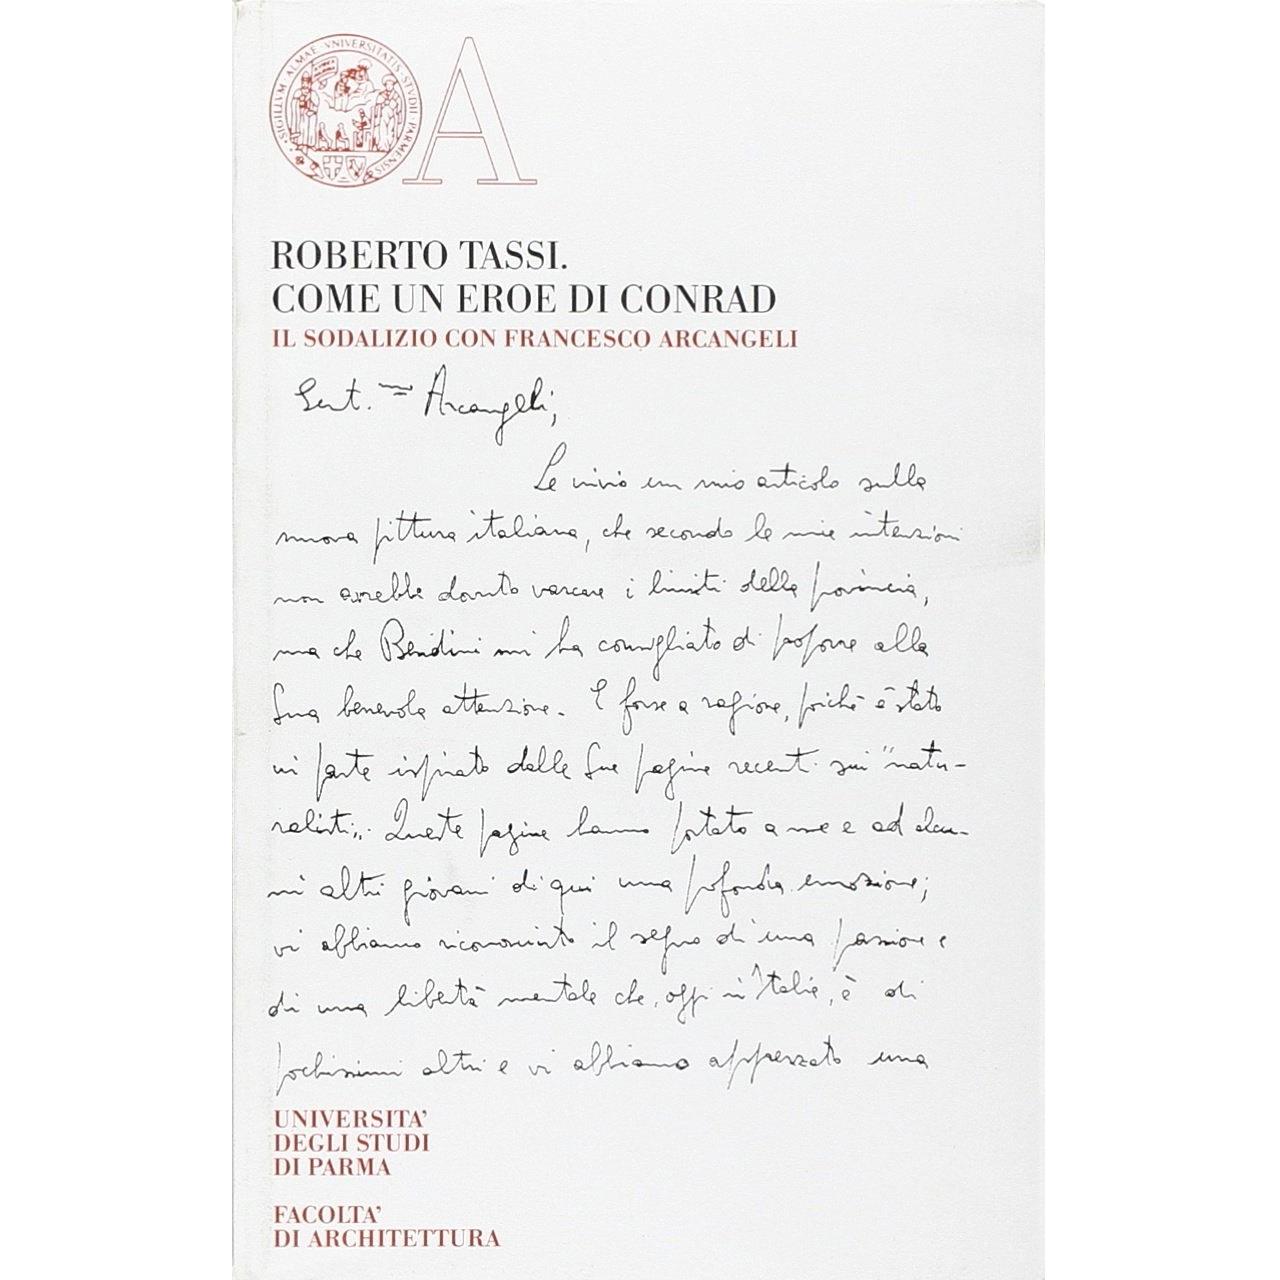 SIGILLVM · ALMAE · VNIVERSITATIS · STVDII · PARMENSIS
A
ROBERTO TASSI.
COME UN EROE DI CONRAD
IL SODALIZIO CON FRANCESCO ARCANGELI
Arcangeli,
Le invio un mio articolo sulla
nuova pittura italiana, che secondo le mie intenzioni
non avrebbe dovuto varcare i limiti della provincia,
ma che Bendini mi ha consigliato di proporre alla
Sua benevola attenzione. E forse a ragione, poiché è stato
in parte ispirato dalle Sue pagine recenti sui "natu-
ralisti". Queste pagine hanno portato a me e ad alcu-
ni altri giovani di qui una profonda emozione;
vi abbiamo riconosciuto il segno di una passione e
di una libertà mentale che, oggi in Italia, è di
pochissimi altri e vi abbiamo apprezzato una
UNIVERSITA'
DEGLI STUDI
DI PARMA
FACOLTA'
DI ARCHITETTURA